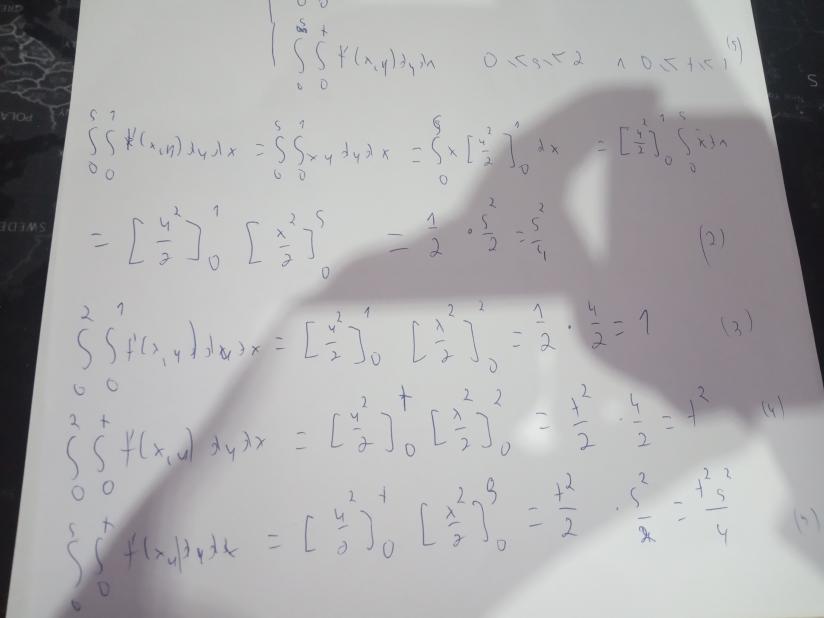 ∫₀ˢ ∫₀ᵗ f(x,y) dy dx 0 ≤ s ≤ 2 ∧ 0 ≤ t ≤ 1 (5)
∫₀ˢ ∫₀¹ f(x,y) dy dx = ∫₀ˢ ∫₀¹ xy dy dx = ∫₀ˢ x [y²/2]₀¹ dx = [y²/2]₀¹ ∫₀ˢ x dx
= [y²/2]₀¹ [x²/2]₀ˢ = 1/2 · s²/2 = s²/4 (2)
∫₀² ∫₀¹ f(x,y) dy dx = [y²/2]₀¹ [x²/2]₀² = 1/2 · 4/2 = 1 (3)
∫₀² ∫₀ᵗ f(x,y) dy dx = [y²/2]₀ᵗ [x²/2]₀² = t²/2 · 4/2 = t² (4)
∫₀ˢ ∫₀ᵗ f(x,y) dy dx = [y²/2]₀ᵗ [x²/2]₀ˢ = t²/2 · s²/2 = t²s²/4
SWEDE
POLA